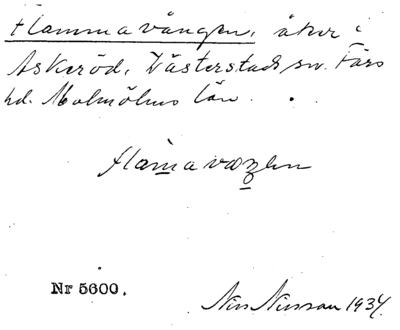 Hammavången, åker i
Askeröd, Västerstads sn. Färs
hd. Malmöhus län.
Nr 5600.
Nils Nilsson 1934.